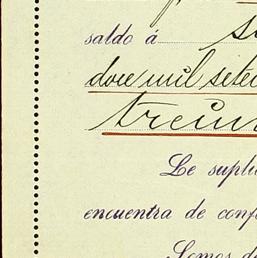 saldo á
doce mil sete
trein
Le supli
encuentra de conf
Somos de